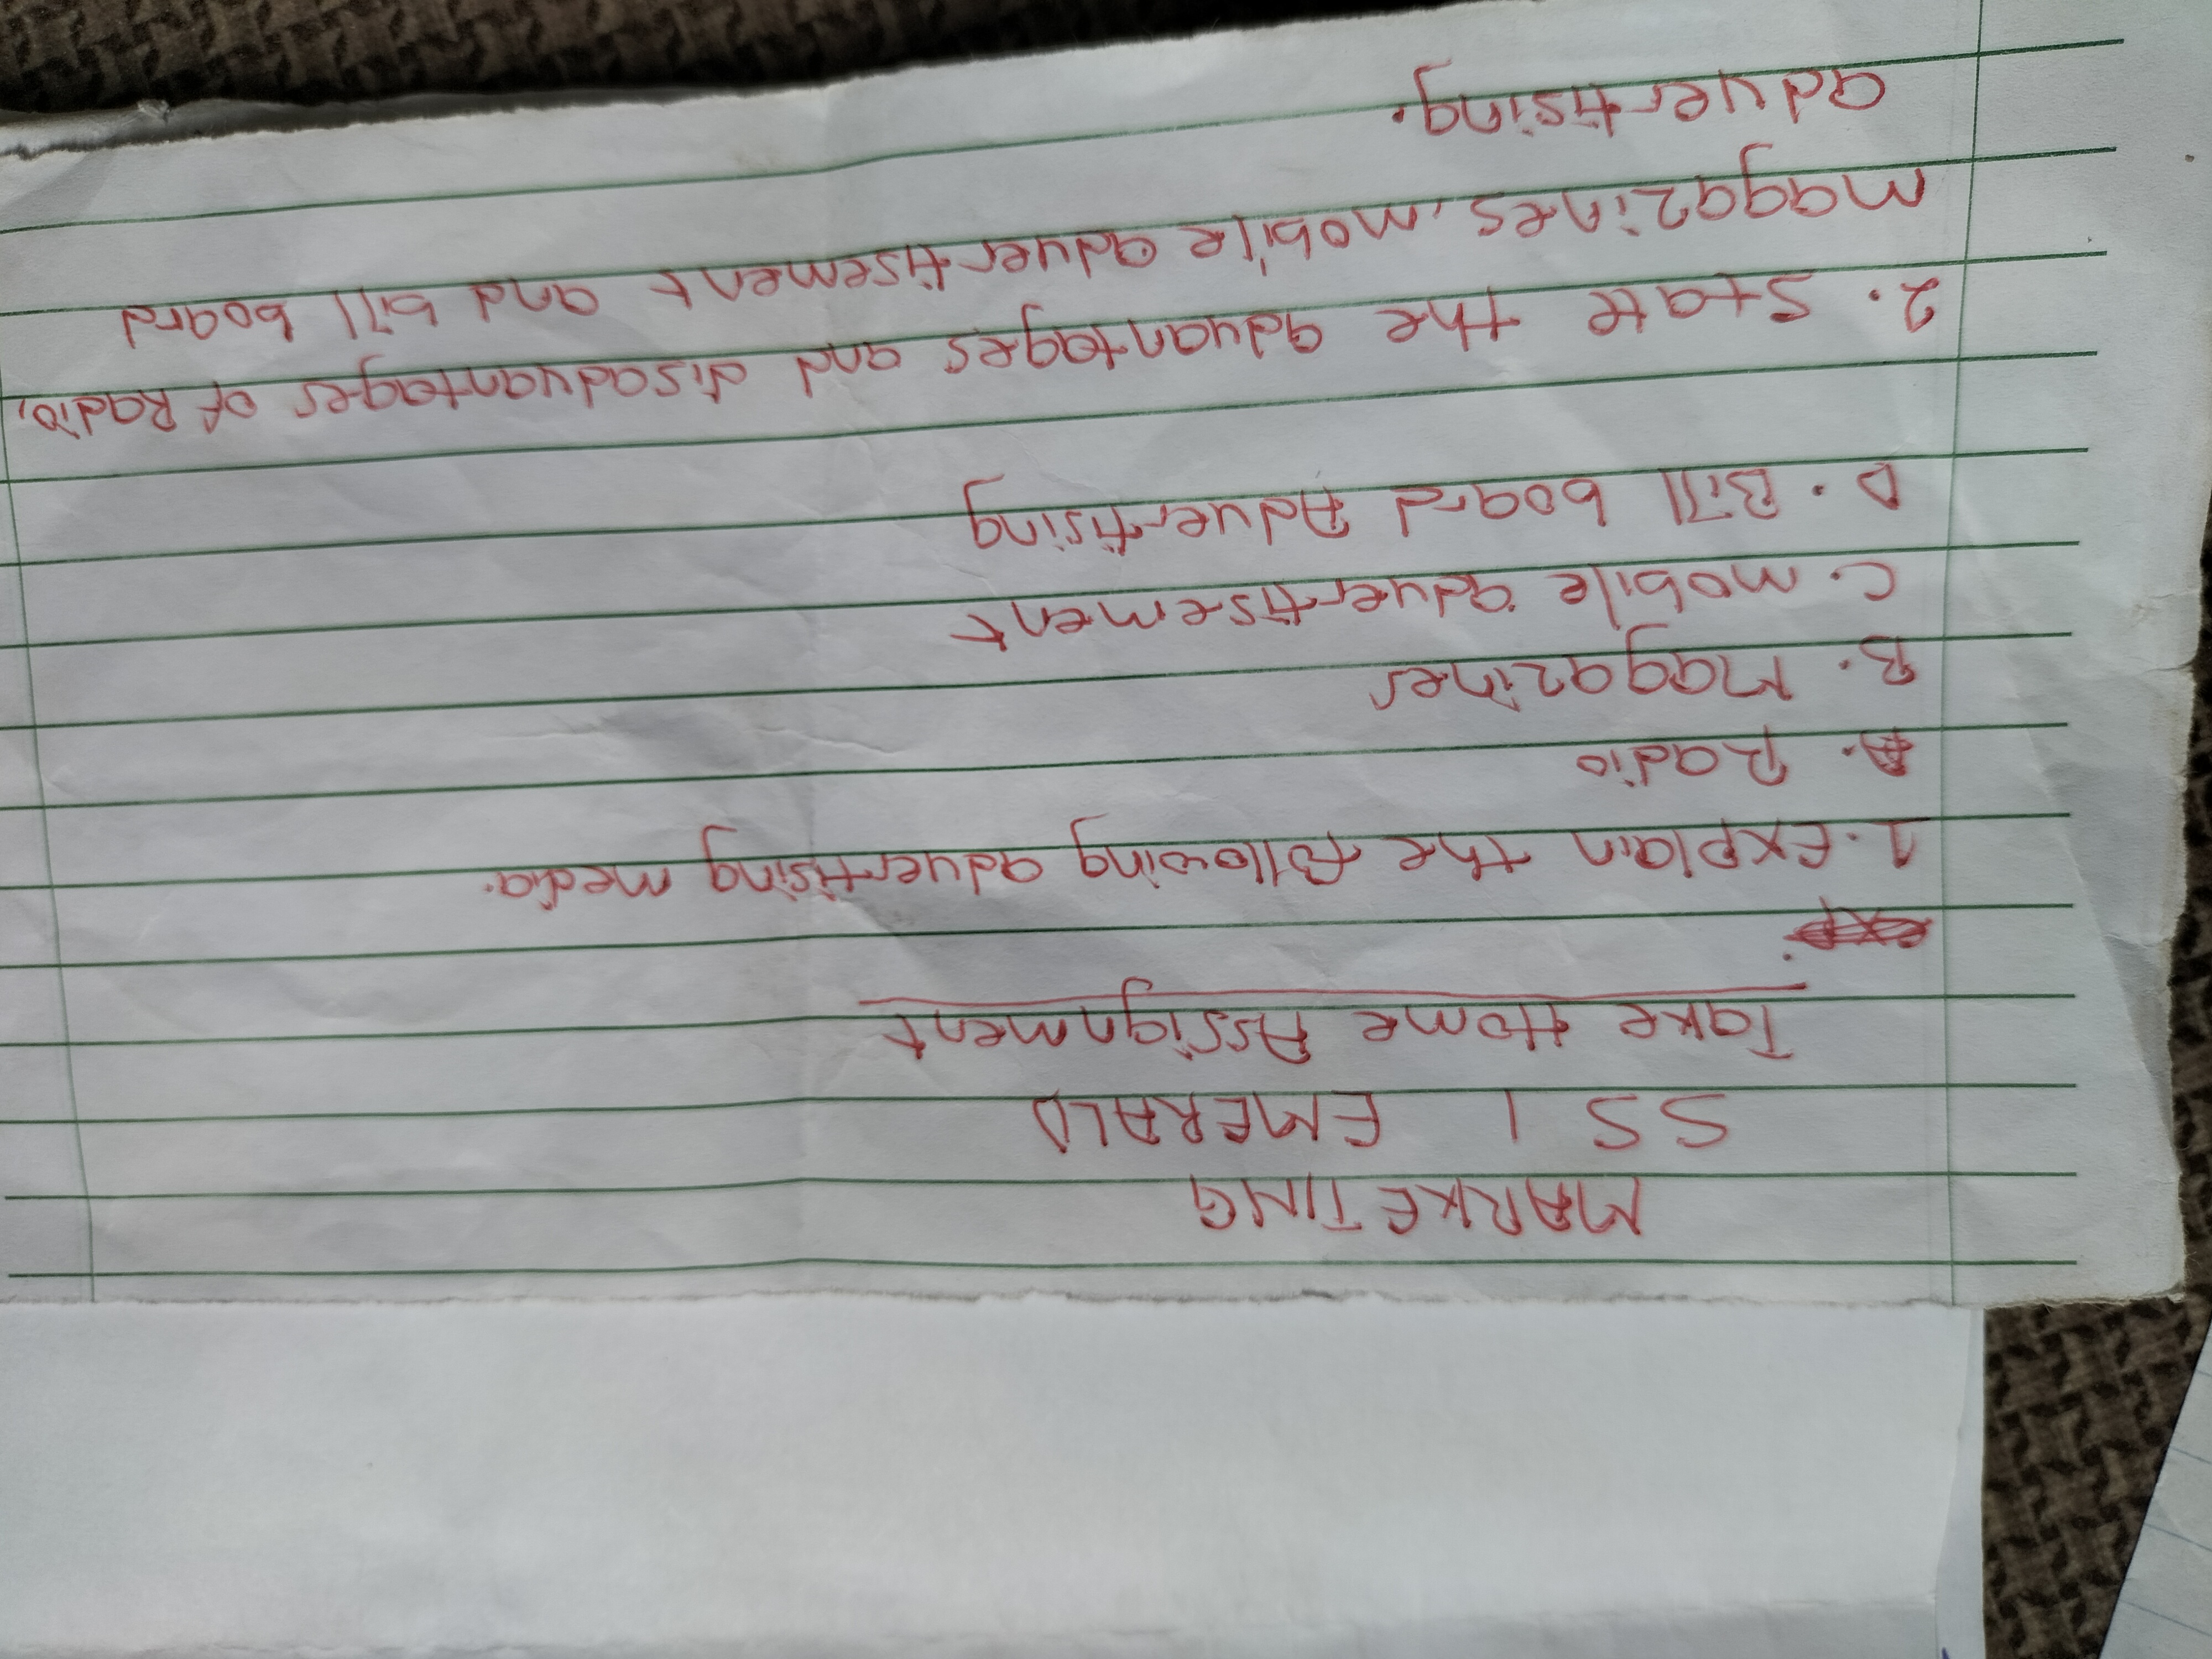 MARKETING
SS 1 EMERALD
Take Home Assignment
1. Explain the following advertising media.
A. Radio
B. Magazines
C. mobile advertisement
D. Bill board Advertising
2. State the advantages and disadvantages of Radio,
magazines, mobile advertisement and bill board
advertising.